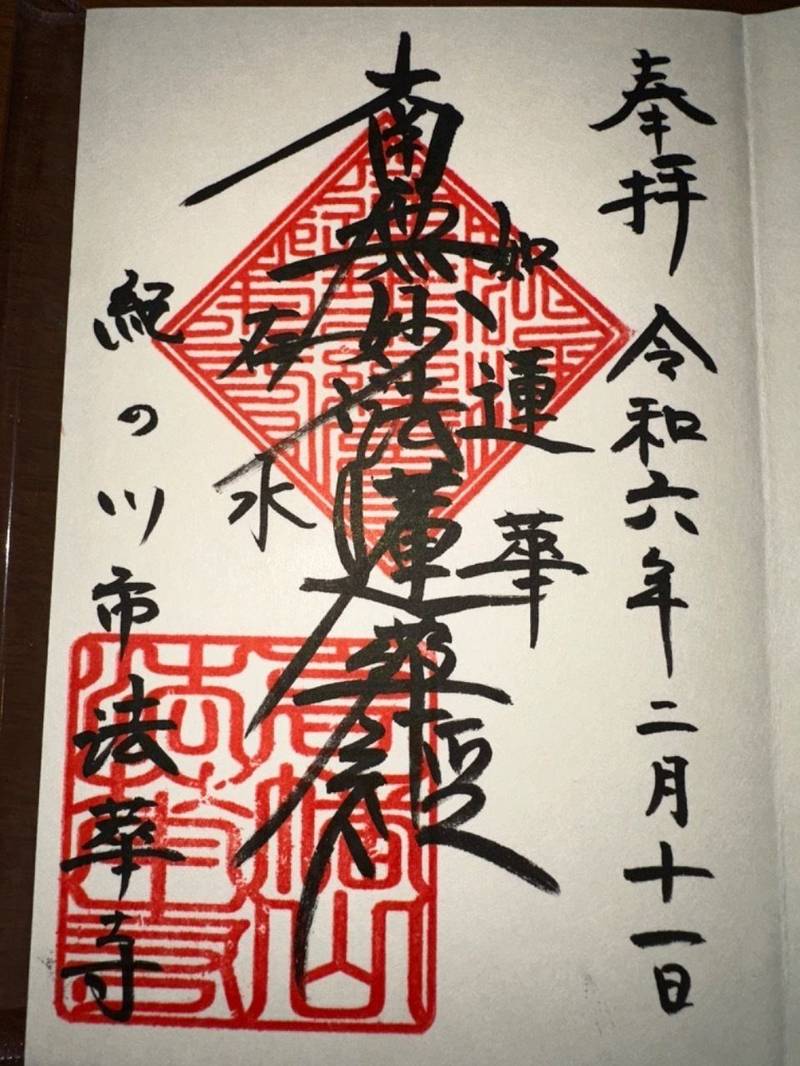 奉拝 令和六年二月十一日
如蓮華
南無妙法蓮華經
在水
紀の川市 法華寺